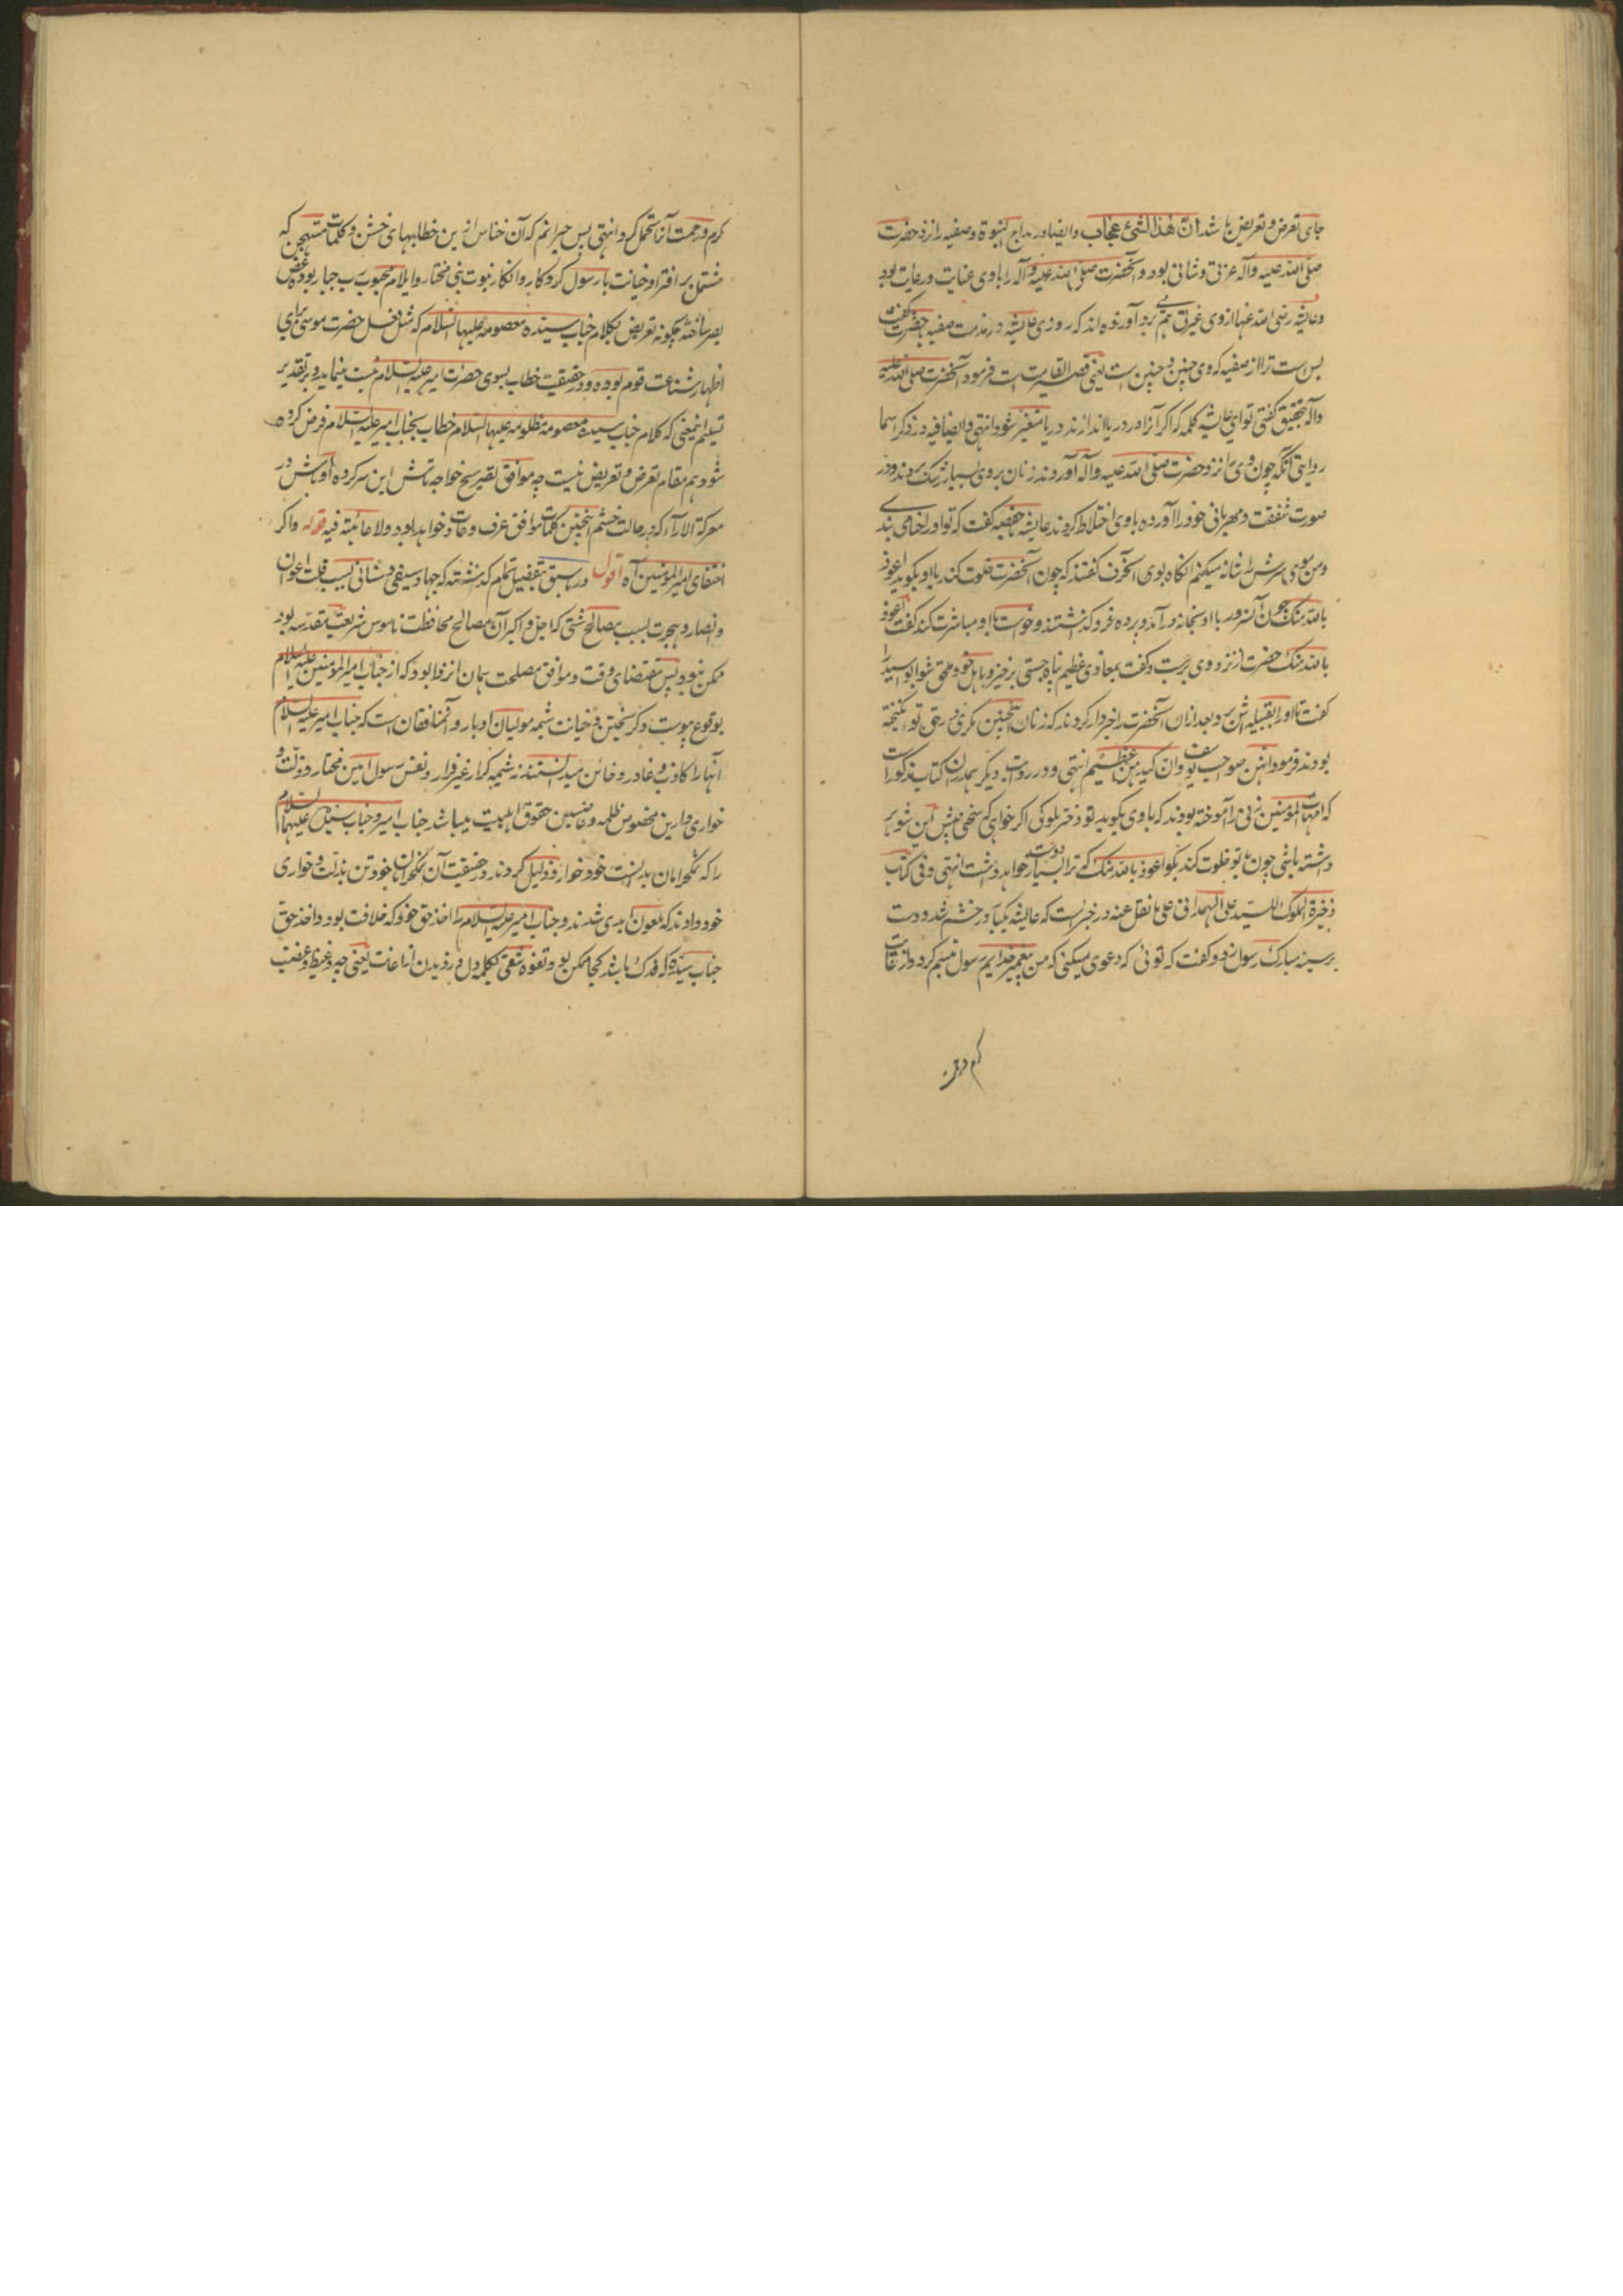 جای تعرض و تعریض باشد ان هذا لشیء عجاب و ایضا در مدارج النبوة و صفیه را نزد حضرت
صلی الله علیه و آله عزتی و شانی بود و آنحضرت صلی الله علیه و آله را با وی عنایت و رعایت بود
و عایشه رضی الله عنها از وی غیرتی هم می برد آورده اند که روزی عایشه در مذمت صفیه بحضرت گفت
بس است ترا از صفیه که وی چنین و چنین است یعنی قصیر القامت است فرمود آنحضرت صلی الله علیه
و آله بتحقیق گفتی تو ای عایشه کلمه که اگر آنرا در دریا اندازند دریا متغیر شود انتهی و ایضا فیه در ذکر اسما
روایتی آنکه چون وی را نزد حضرت صلی الله علیه و آله آوردند زنان بر وی بسیار رشک بردند و در
صورت شفقت و مهربانی خود را آورده با وی اختلاط کردند عایشه بحفصه گفت که تو او را حنا می بندی
و من موی سرش را شانه میکنم آنگاه بوی گفتند که چون آنحضرت خلوت کند با او بگوید اعوذ
بالله منک چون آن سرور با او بخانه درآمد و پرده فرو گذاشتند و خواست با او مباشرت کند گفت اعوذ
بالله منک حضرت از نزد وی برجست و گفت بمعاذی عظیم پناه جستی برخیز و باهل خود ملحق شو ابو اسید را
گفت تا او را بقبیله اش برد و بعد ازان آنحضرت را خبردار کردند که زنان اینچنین مکری در حق تو انگیخته
بودند فرمود انهن صواحب یوسف و ان کیدهن عظیم انتهی و در روایت دیگر همدران کتاب مذکور است
که امهات المؤمنین زنی را آموخته بودند که با وی بگوید تو دختر ملوکی اگر خواهی که سخی پیش این شوهر
داشته باشی چون با تو خلوت کند بگو اعوذ بالله منک که ترا بسیار دوست خواهد داشت انتهی و فی کتاب
ذخیرة الملوک للسید علی الهمدانی علی ما نقل عنه در خبر است که عایشه یکبار در خشم شد و دست
بر سینه مبارک رسول زد و گفت که توئی که دعوی میکنی که من پیغمبر خدایم رسول تبسم کرد و از غایت
کرم و رحمت
کرم و رحمت آنرا تحمل کرد انتهی پس حیرانم که آن خناس ازین خطابهای خشن و کلمات مستهجن که
مشتمل بر افترا و خیانت با رسول کردگار و انکار نبوت نبی مختار و ایلام محبوب رب جبار بوده غض
بصر ساخته چگونه تعریض بکلام جناب سیده معصومه علیها السلام که مثل فعل حضرت موسی برای
اظهار شناعت قوم بوده و در حقیقت خطاب بسوی حضرت امیر علیه السلام نیست مینماید و بر تقدیر
تسلیم اینمعنی که کلام جناب سیده معصومه مظلومه علیها السلام خطاب بجناب امیر علیه السلام فرض کرده
شود هم مقام تعرض و تعریض نیست چه موافق تصریح خواجه تاش این سرکرده اوباش در
معرکة الآراء که در حالت خشم اینچنین کلمات موافق عرف و عادت خواهد بود ولا عائبة فیه قوله و اگر
اختفای امیر المؤمنین آه اقول در ما سبق بتفصیل تمام گذشته که جهاد سیفی و سنانی بسبب قلت اعوان
و انصار و هجرت بسبب مصالح شتی که اجل و اکبر آن مصالح محافظت ناموس شریعت مقدسه بود
ممکن نبود پس مقتضای وقت و موافق مصلحت همان انزوا بود که از جناب امیر المؤمنین علیه السلام
بوقوع پیوست و گریختن و خیانت شیمه مولیان ادبار و آن منافقان است که جناب امیر علیه السلام
آنها را کاذب و غادر و خائن میدانستند نه شیمه کرار غیر فرار و نفس رسول امین مختار و ذلت و
خواری دارین مخصوص ظلمه و غاصبین حقوق اهلبیت میباشد جناب امیر و جناب سیده علیهما السلام
را که نمکحرامان بدانست خود خوار و ذلیل کردند در حقیقت آن نمکحرامان خود تن بذلت و خواری
خود دادند که ملعون ابدی شدند و جناب امیر علیه السلام را اخذ حق خود که خلافت بود و اخذ حق
جناب سیده که فدک باشد کجا ممکن بود و تفوه شقی بکلمه دل دزدیدن از اعانت یعنی چه و غیظ و غضب